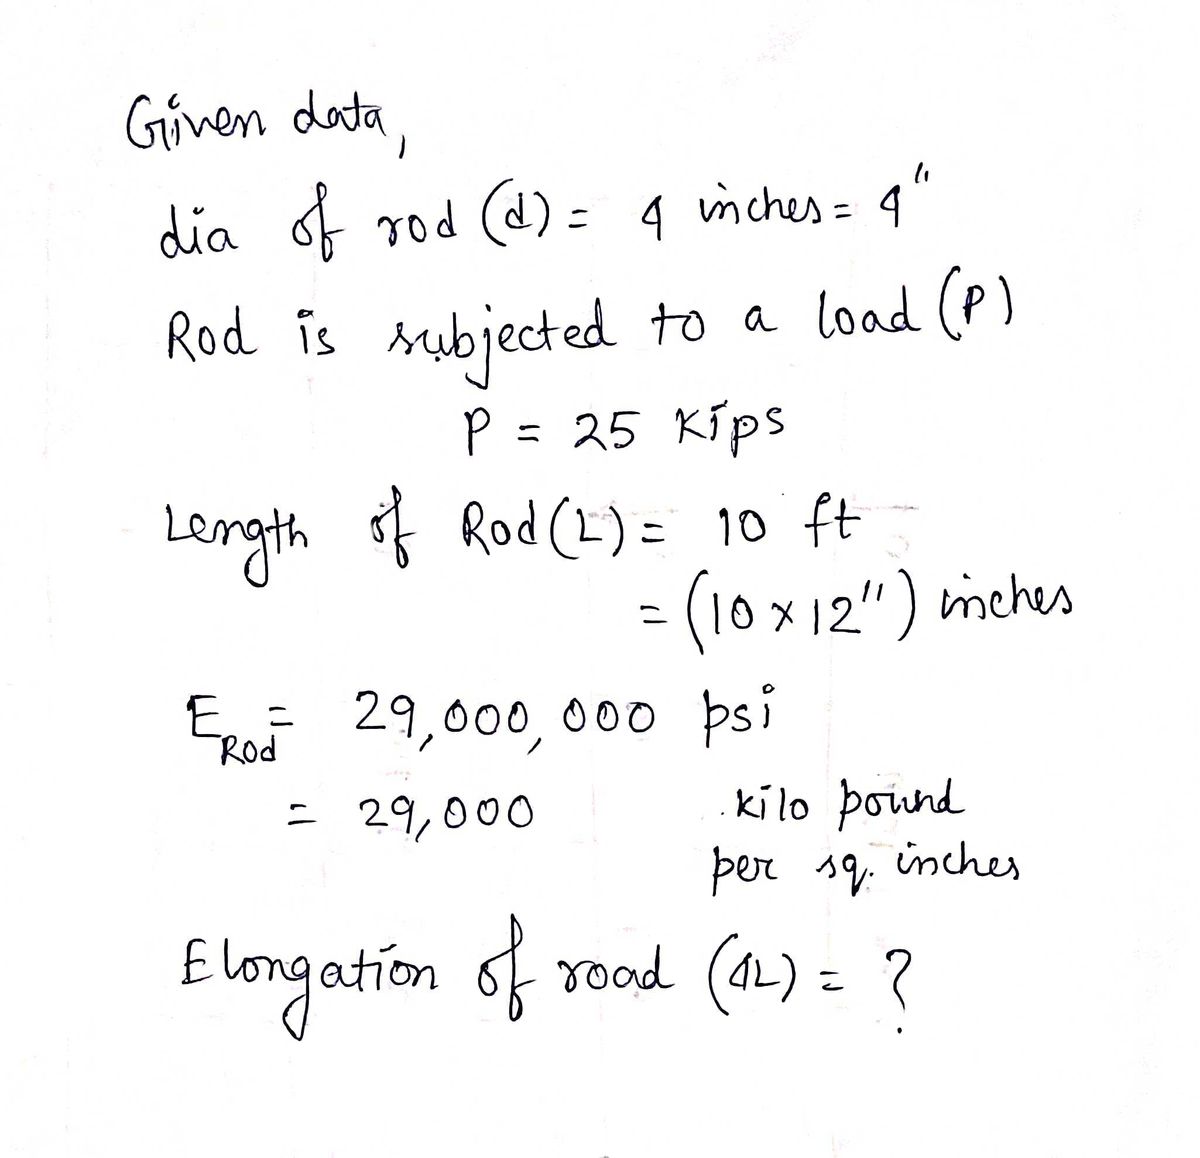 Given data,
dia of rod (d) = 4 inches = 4"
Rod is subjected to a load (P)
P = 25 Kips
Length of Rod (L) = 10 ft
= (10 x 12") inches
E_Rod = 29,000,000 psi
= 29,000 kilo pound
per sq. inches
Elongation of road (ΔL) = ?